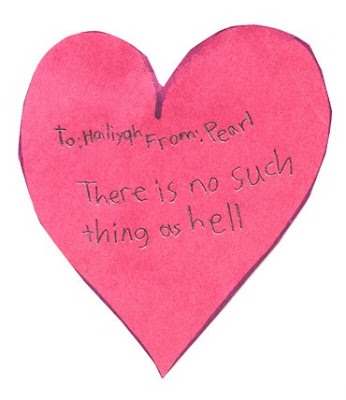 To: Hailiyah From: Pearl
There is no such
thing as hell